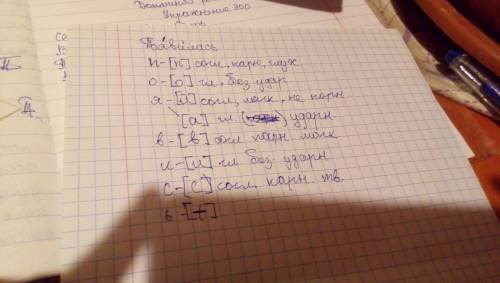 Домашняя
Упражнение 300
Появилась
П-[п] согл, парн, глух
о-[о] гл, без удар
я-[й] согл, мягк, не парн
[а] гл ударн
в-[в] согл парн мягк
и-[и] гл без ударн
с-[с] согл. парн. тв.
ь-[-]